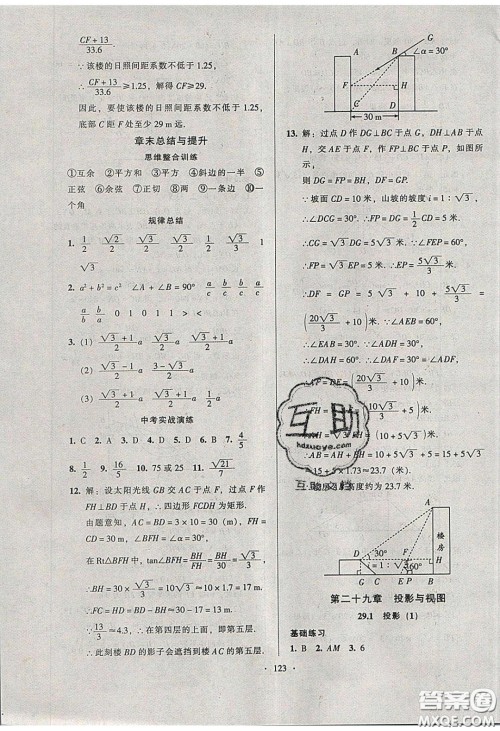 CF+13
33.6
∵该楼的日照间距系数不低于 1.25,
∴ (CF+13)/33.6 ≥1.25, 解得 CF≥29.
因此, 要使该楼的日照间距系数不低于 1.25,
底部 C 距 F 处至少 29 m 远.
章末总结与提升
思维整合训练
①互余 ②平方和 ③平方 ④斜边的一半 ⑤
正弦 ⑥余弦 ⑦正切 ⑧两边 ⑨一条边 ⑩一
个角
规律总结
1. 1/2 √2/2 √3/2 √3/2 √2/2 1/2 √3/3 1
√3
2. a²+b²=c² ∠A+∠B=90° a/c b/c a/b b/c
a/c b/a 0 1 0 1 1 > < >
3. (1) (√3+1)/2 a (√3+1)/2 a
(2) (√3-1)/2 a (3-√3)/2 a
(3) (√3+1)/2 a (√3+1)/2 a
中考实战演练
1. C 2. A 3. D 4. D 5. D 6. B 7. 4/5
8. 1/2 9. 16/5 10. 75 或 25 11. √21/7
12. 解: 设太阳光线 GB 交 AC 于点 F, 过点 F 作
FH⊥BD 于点 H, ∴四边形 FCDH 为矩形.
由题意知, AC=BD=3×10=30(米), FH=
CD=30 米, ∠BFH=∠α=30°.
在 Rt△BFH 中, tan∠BFH=BH/FH=BH/30=√3/3,
∴BH=30×√3/3=10√3≈10×1.73=17.3(米).
∴FC=HD=BD-BH≈30-17.3=12.7(米).
∵13/3≈4.3, ∴在第四层的上面, 即第五层.
∴此刻楼 BD 的影子会遮挡到楼 AC 的第五层.
G
A B ∠α=30°
F H
C D
30 m
13. 解: 过点 D 作 DG⊥BC 于点 G, DH⊥AB 于点
H, 交 AE 于点 F, 作 FP⊥BC 于点 P, 如图所
示,
则 DG=FP=BH, DF=GP.
∵坡面 CD=10 米, 山坡的坡度 i=1:√3,
∴∠DCG=30°. ∴FP=DG=1/2 CD=5 米.
∴CG=√3 DG=5√3 米. ∵∠FEP=60°,
∴FP=√3 EP=5 米. ∴EP=5√3/3 米.
∴DF=GP=5√3+10+5√3/3=
(20√3/3+10)米. ∵∠AEB=60°,
∴∠EAB=30°. ∵∠ADH=30°,
∴∠DAH=60°. ∴∠DAF=30°=∠ADF.
∴AF=DF=(20√3/3+10)米.
∴FH=1/2 AF=(10√3/3+5)米.
∴AH=√3 FH=(10+5√3)米.
∴AB=AH+BH=10+5√3+5=15+5√3
≈15+5×1.73≈23.7(米).
高度约为 23.7 米.
A
楼
房
D 30° F H
i=1:√3 60°
G C E P B
第二十九章 投影与视图
29.1 投影 (1)
基础练习
1. B 2. AM 3. C
· 123 ·
互助
hdzuoye.com
互助文档
答案圈
MXQE.COM